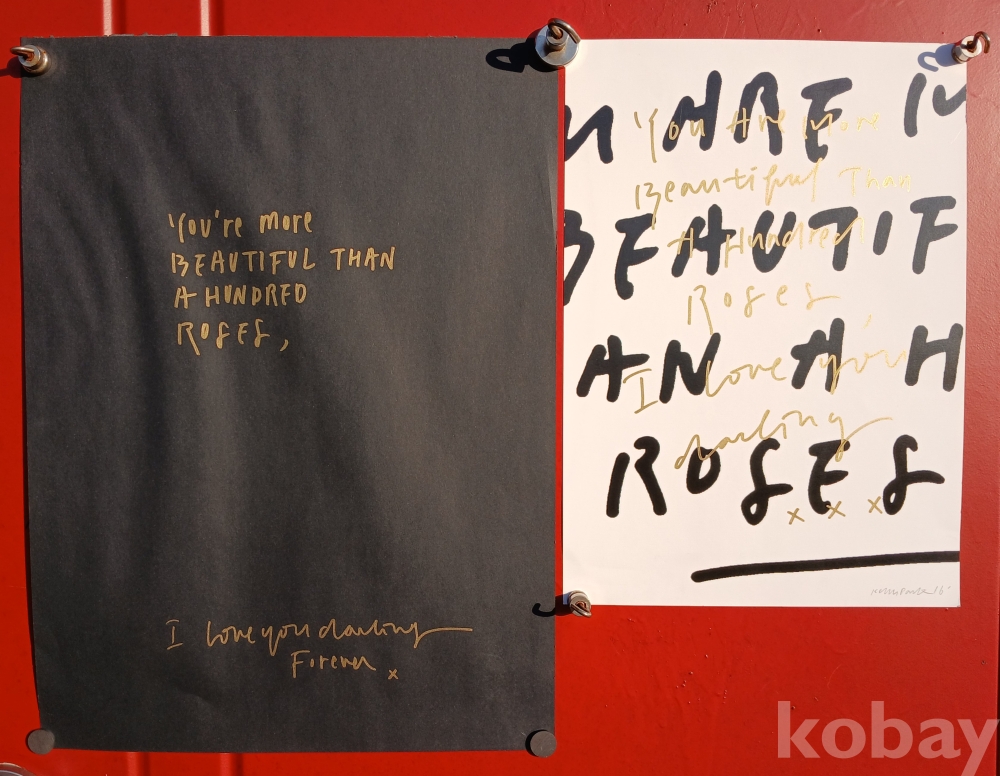 You're more
BEAUTIFUL THAN
A HUNDRED
ROSES,
I love you darling
Forever x
U ARE M
BEAUTIF
AN A H
ROSES
You Are More
Beautiful Than
A Hundred
Roses,
I love you
darling
x x x
16'
kobay